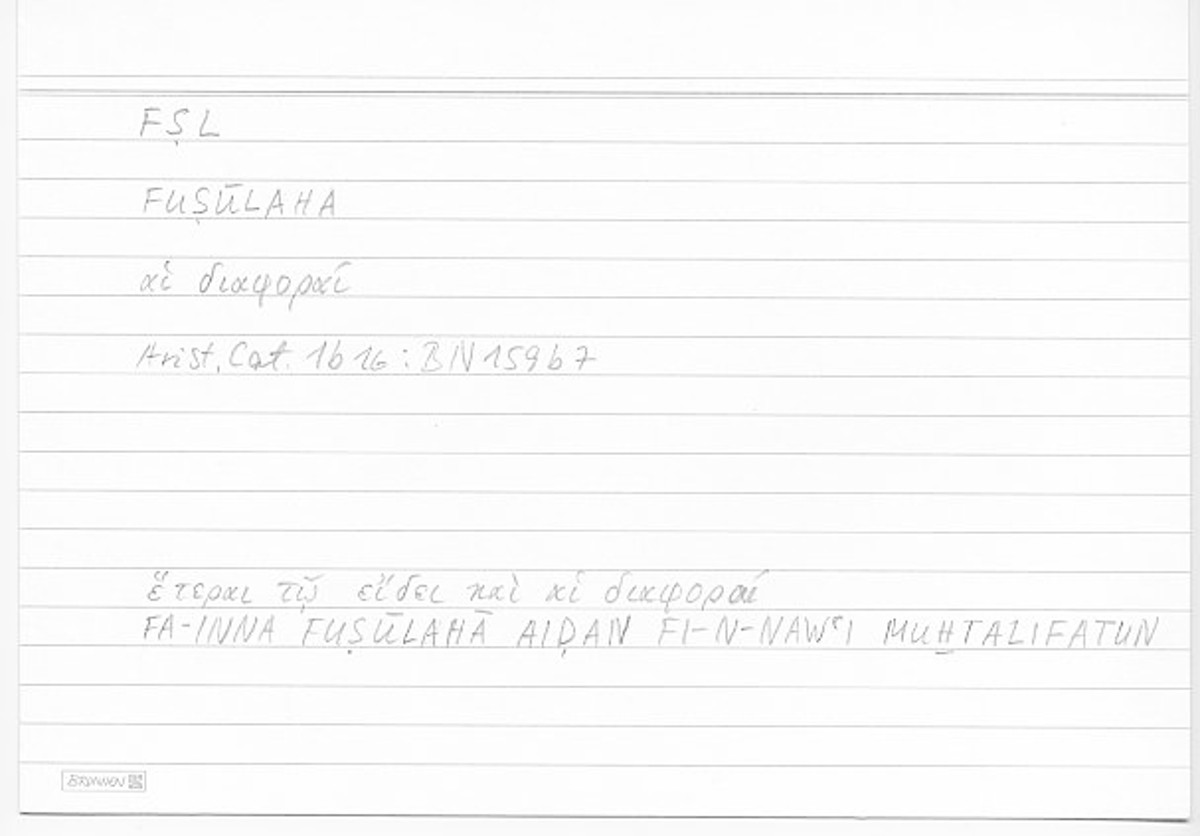 FṢL
FUṢŪLAHA
αἱ διαφοραί
Arist. Cat. 1b16 : BN 159b7
ἕτεραι τῷ εἴδει καὶ αἱ διαφοραί
FA-INNA FUṢŪLAHĀ AIḌAN FI-N-NAWʿI MUḪTALIFATUN
BRUNNEN